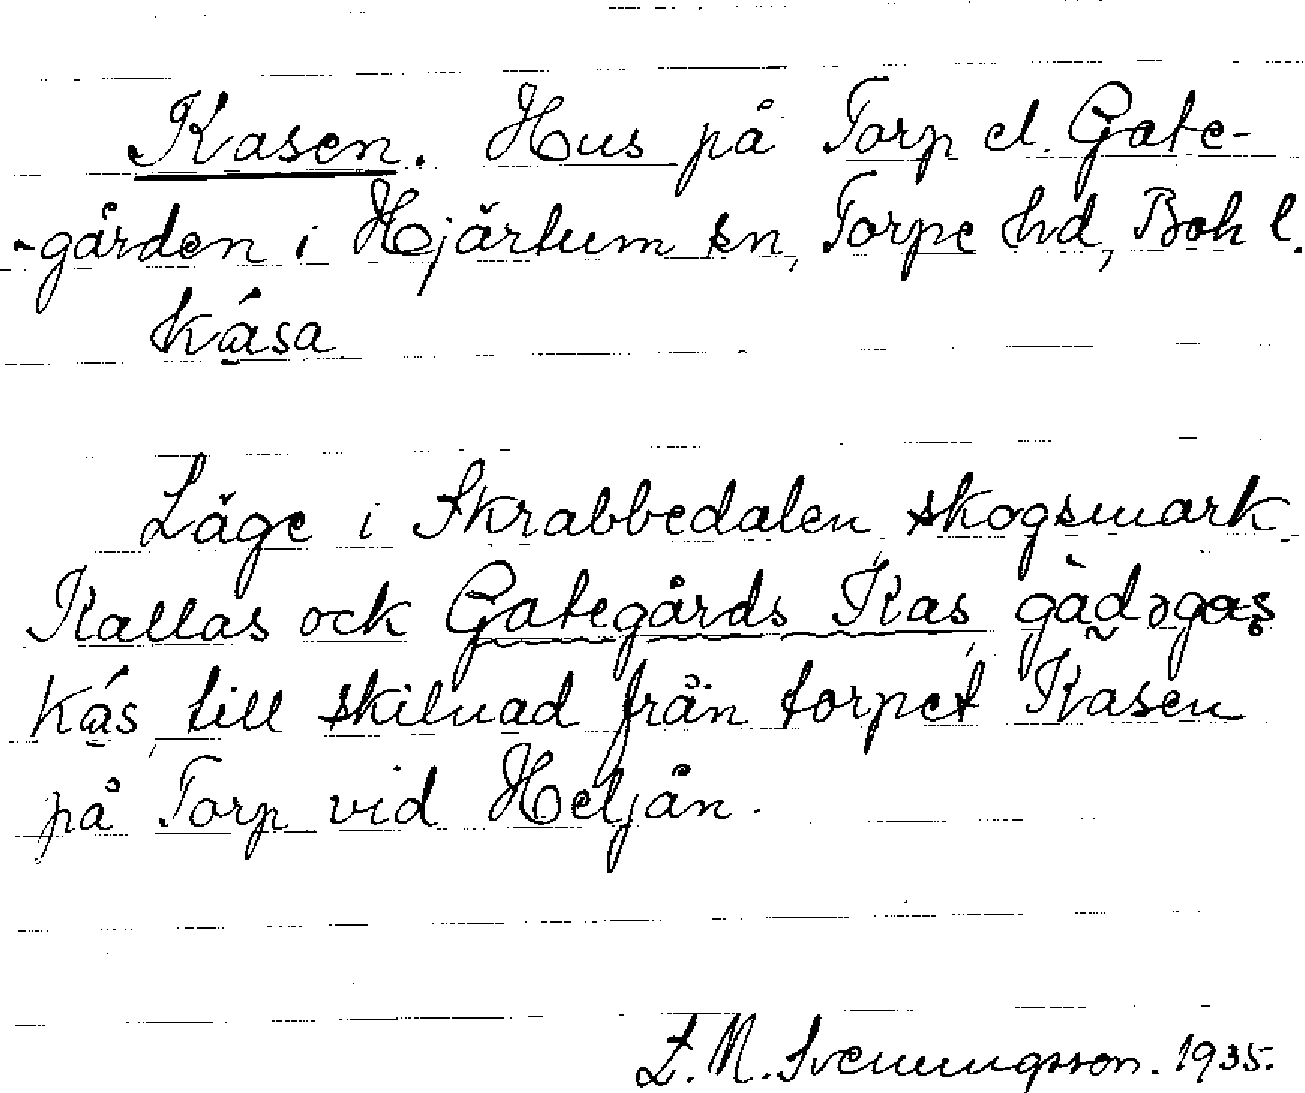 Kasen. Hus på Torp el. Gate-
-gården i Hjärtum sn, Torpe hd, Boh l.
kása
Läge i Skrabbedalen skogsmark
Kallas ock Gategårds Kas gàdəgas
kás till skilnad från torpet Kasen
på Torp vid Heljån.
L. M. Svenningsson. 1935.